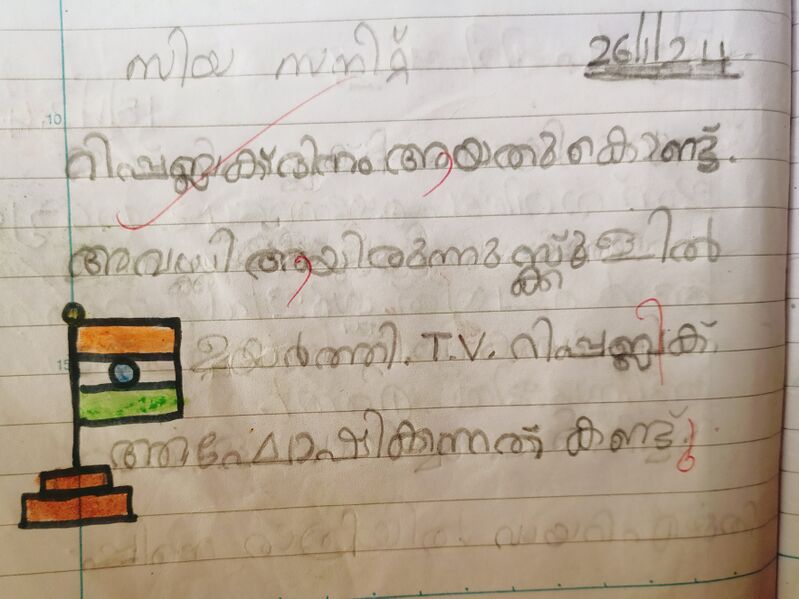 സിയ സനിറ്റ് 26/1/24
റിപ്പബ്ലക്ദിനം ആയതുകൊണ്ട്.
അവധി ആയിരുന്നു സ്ക്കൂളിൽ
ഉയർത്തി. T.V. റിപ്പബ്ലിക്
ആഘോഷിക്കുന്നത് കണ്ടു